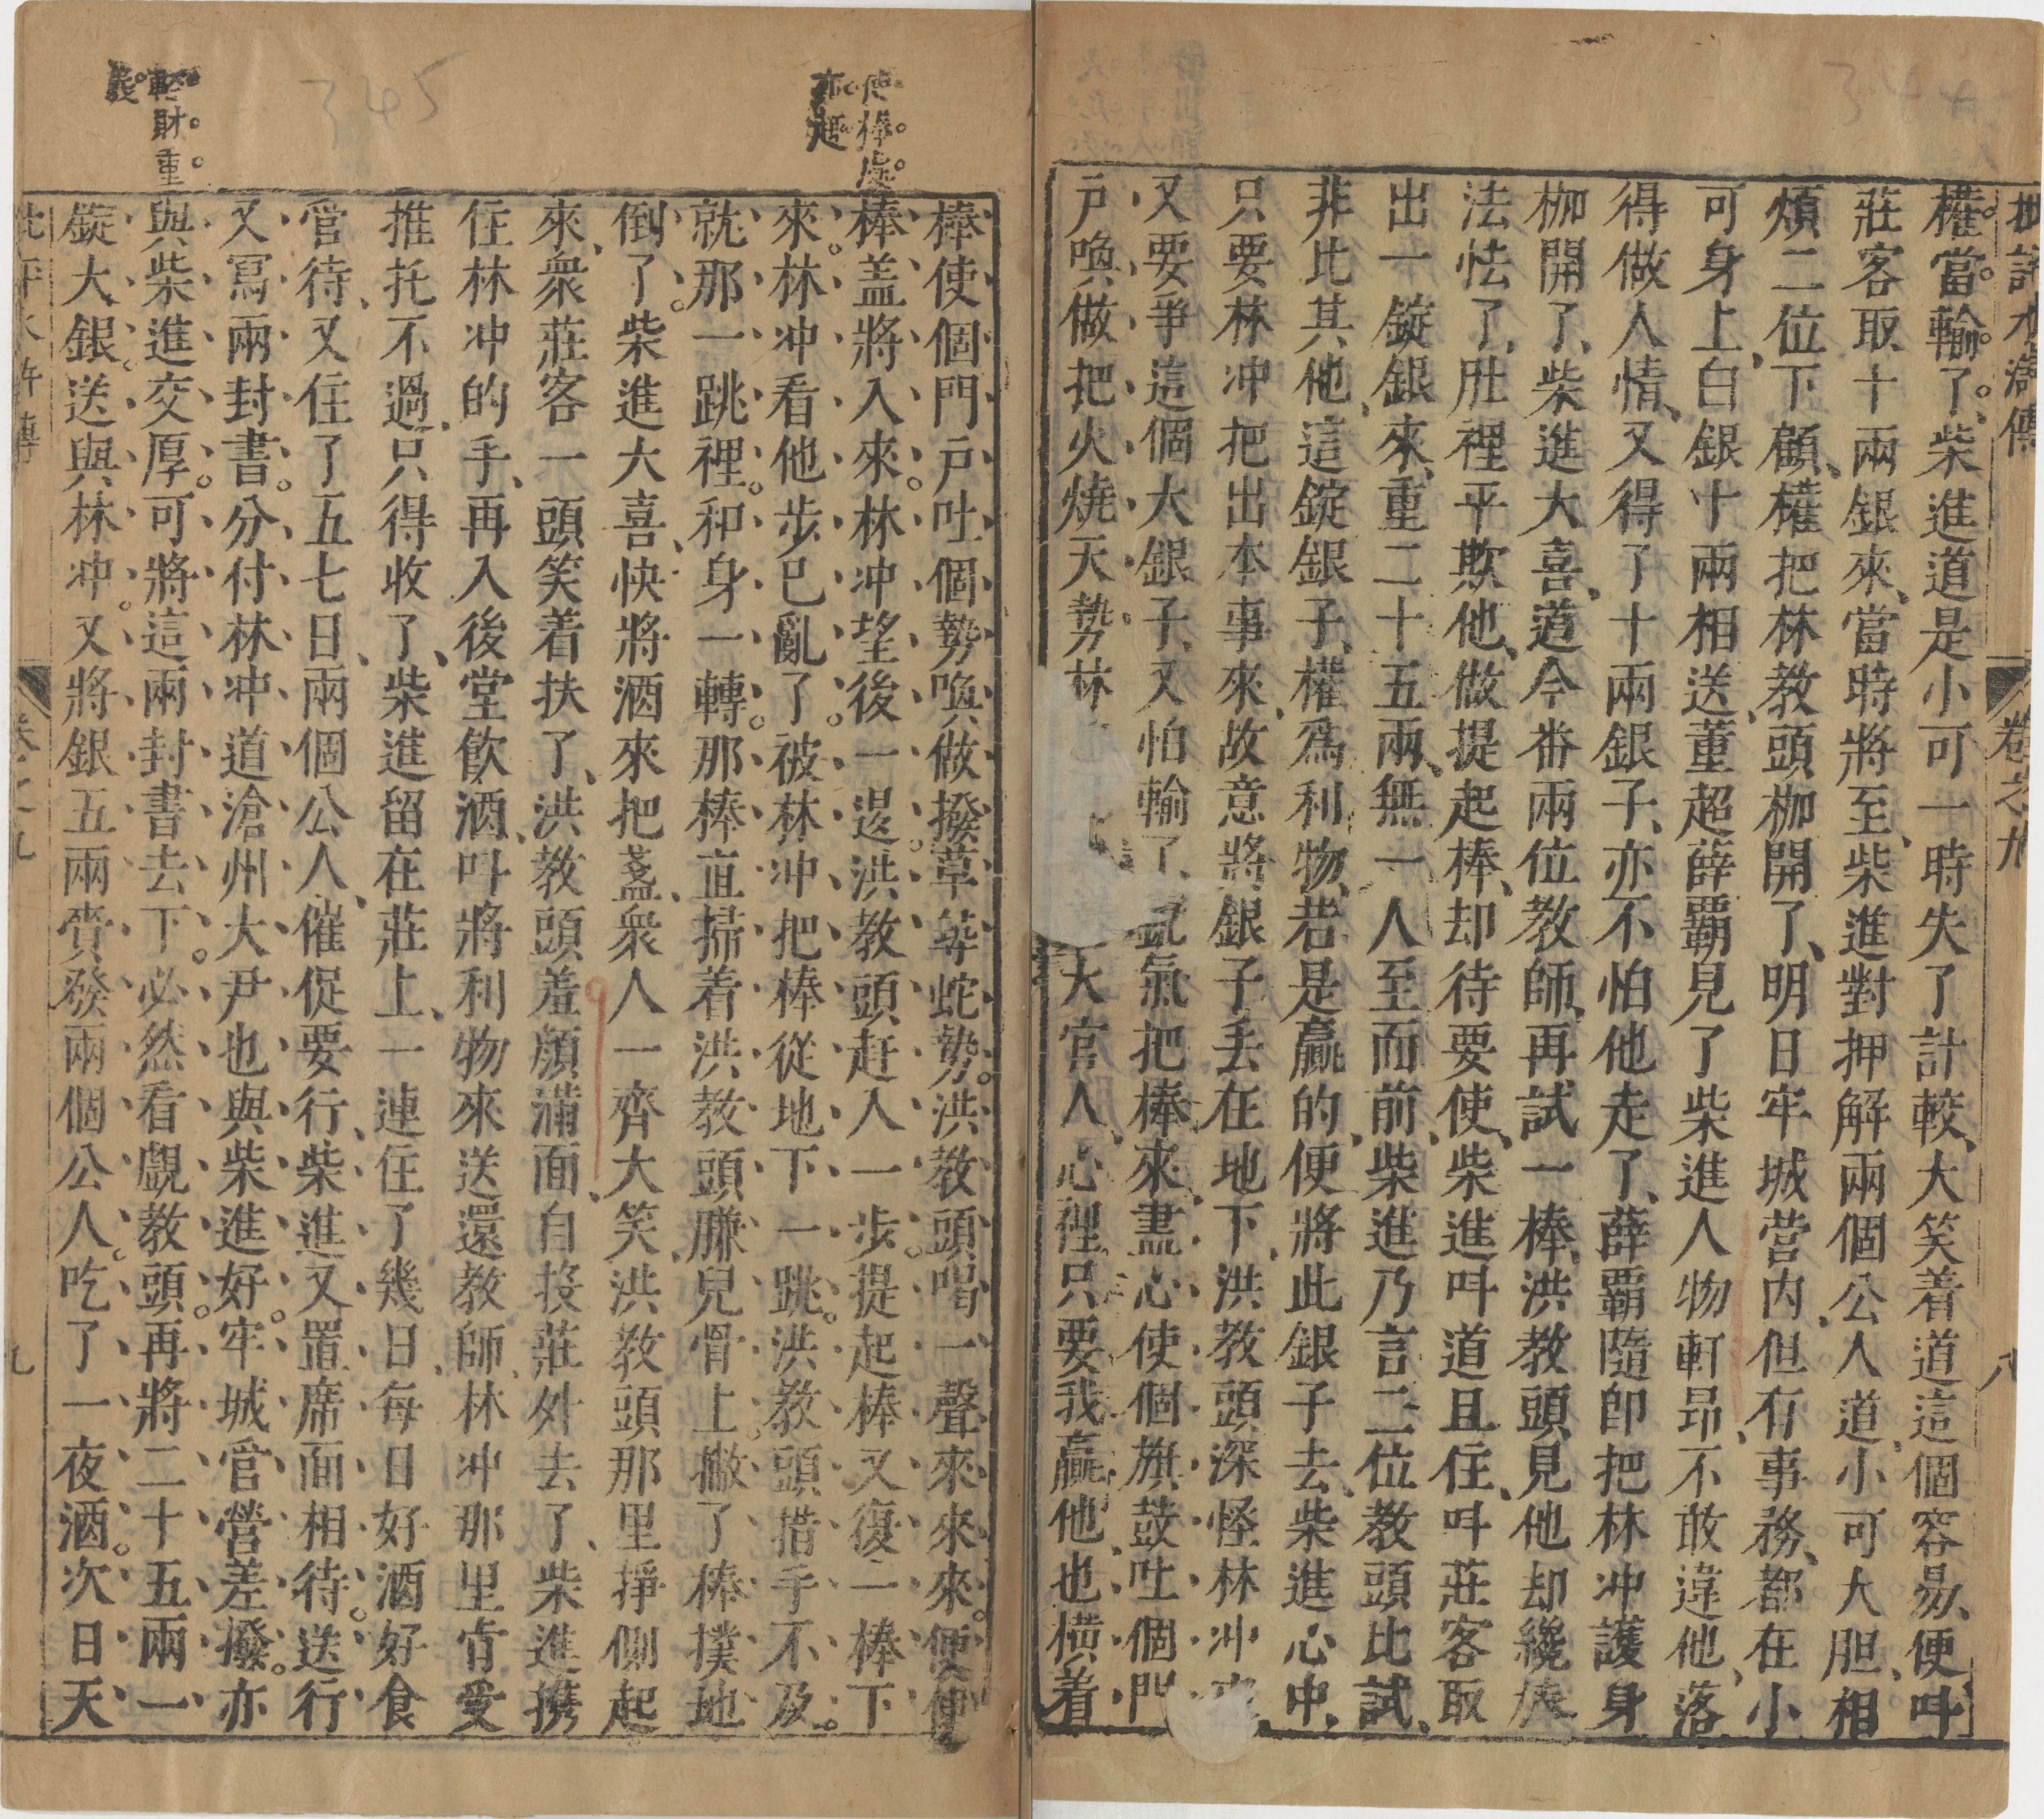 批評水滸傳
卷之九
八
權當輸了柴進道是小可一時失了計較大笑着道這個容易便叫
莊客取十兩銀來當時將至柴進對押解兩個公人道小可大胆相
煩二位下顧權把林教頭枷開了明日牢城营内但有事務都在小
可身上白銀十兩相送董超薛霸見了柴進人物軒昂不敢違他落
得做人情又得了十兩銀子亦不怕他走了薛霸隨即把林冲護身
枷開了柴進大喜道今番兩位教師再試一棒洪教頭見他却纔棒
法怯了肚裡平欺他做提起棒却待要使柴進叫道且住叫莊客取
出一錠銀來重二十五兩無一人至面前柴進乃言二位教頭比試
非比其他這錠銀子權爲利物若是贏的便將此銀子去柴進心中
只要林冲把出本事來故意將銀子丢在地下洪教頭深怪林冲來
又要爭這個大銀子又怕輸了氣把棒來盡心使個旗鼓吐個門
戸喚做把火燒天勢林大官人心裡只要我贏他也橫着
使棒處亦趣
棒使個門戸吐個勢喚做撥草尋蛇勢洪教頭喝一聲來來來便使
棒盖將入來林冲望後一退洪教頭赶入一步提起棒又復一棒下
來林冲看他步已亂了被林冲把棒從地下一跳洪教頭措手不及
就那一跳裡和身一轉那棒直掃着洪教頭臁兒骨上撇了棒撲地
倒了柴進大喜快將酒來把盞衆人一齊大笑洪教頭那里掙側起
來衆莊客一頭笑着扶了洪教頭羞顔滿面自投莊外去了柴進携
住林冲的手再入後堂飲酒叫將利物來送還教師林冲那里肯受
推托不過只得收了柴進留在莊上一連住了幾日每日好酒好食
管待又住了五七日兩個公人催促要行柴進又置席面相待送行
又寫兩封書分付林冲道滄州大尹也與柴進好牢城管營差撥亦
輕財重義
與柴進交厚可將這兩封書去下必然看覷教頭再將二十五兩一
錠大銀送與林冲又將銀五兩賫發兩個公人吃了一夜酒次日天
批評水滸傳
卷之九
九